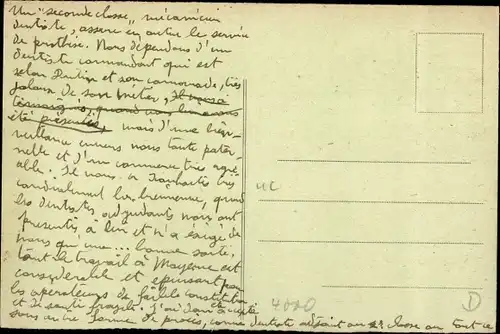 Un "seconde classe", mécanicien
dentiste, assure en outre le service
de prothèse. Nous dépendons d'un
dentiste commandant qui est
selon Dentin et son camarade, très
jaloux de son métier, il nous a
témoigné, quand nous lui avons
été présentés, mais d'une bien-
veillance envers nous toute pater-
nelle et d'un commerce très agré-
able. Il nous a souhaité très
cordialement la bienvenue, quand
les dentistes adjudants nous ont
présentés à lui et n'a exigé de
nous qu'une... bonne santé.
tant le travail à Mayence est
considérable et épuisant pour
les opérateurs de faible constitution
et de santé fragile. J'ai donc été accepté
sous cette forme de procès, comme dentiste adjoint au chose en tout ce
4C
4000
D